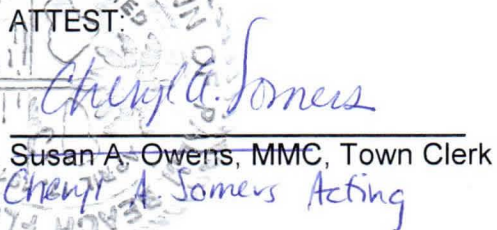 ATTEST:
Cheryl A. Somers
Susan A. Owens, MMC, Town Clerk
Cheryl A Somers Acting